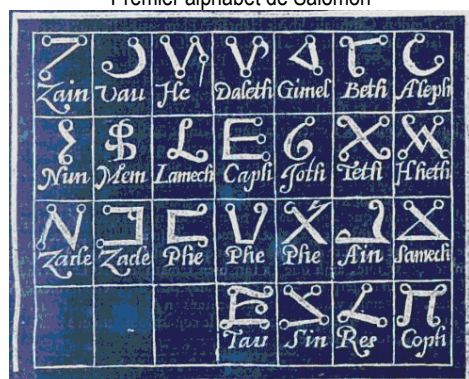 Premier alphabet de Salomon
Zain Vau He Daleth Gimel Beth Aleph
Nun Mem Lamech Caph Joth Teth Hheth
Zade Zade Phe Phe Phe Ain Samech
Tau Sin Res Coph